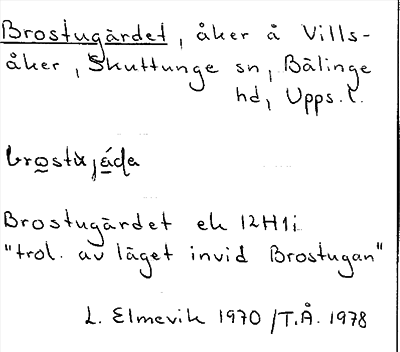 Brostugärdet, åker å Vills-
åker, Skuttunge sn, Bälinge
hd, Upps. l.
Brostugärdet ek 12H1i
"trol. av läget invid Brostugan"
L. Elmevik 1970 / T.Å. 1978